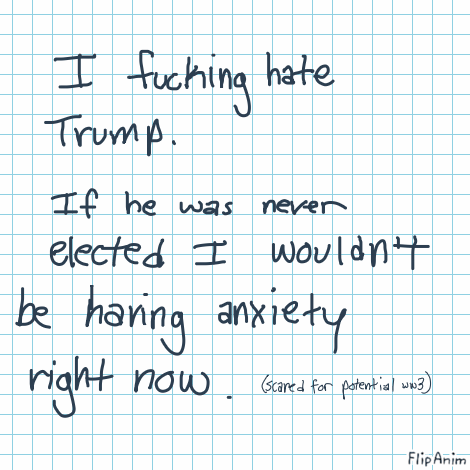 I fucking hate
Trump.
If he was never
elected I wouldn't
be having anxiety
right now. (scared for potential ww3)
FlipAnim